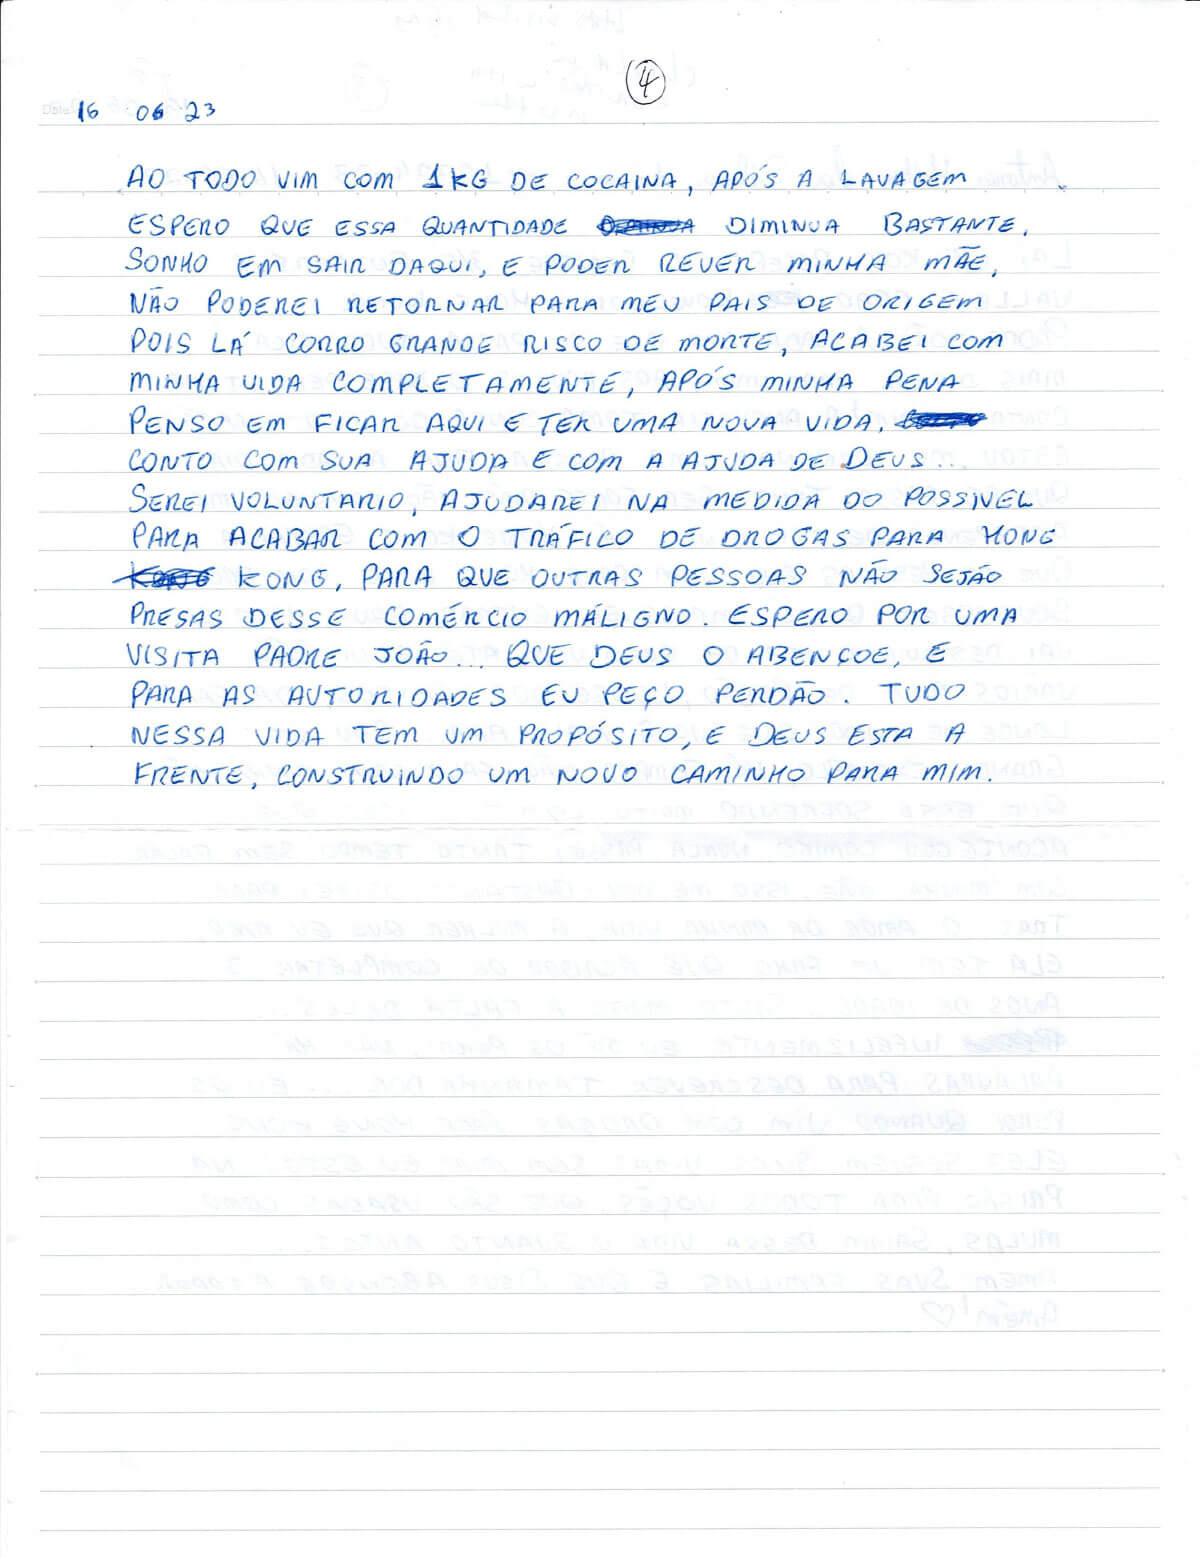 4
Date 16 06 23
AO TODO VIM COM 1KG DE COCAINA, APÓS A LAVAGEM
ESPERO QUE ESSA QUANTIDADE DIMINUA BASTANTE.
SONHO EM SAIR DAQUI, E PODER REVER MINHA MÃE,
NÃO PODEREI RETORNAR PARA MEU PAIS DE ORIGEM
POIS LÁ CORRO GRANDE RISCO DE MORTE, ACABEI COM
MINHA VIDA COMPLETAMENTE, APÓS MINHA PENA
PENSO EM FICAR AQUI E TER UMA NOVA VIDA.
CONTO COM SUA AJUDA E COM A AJUDA DE DEUS...
SEREI VOLUNTARIO, AJUDAREI NA MEDIDA DO POSSIVEL
PARA ACABAR COM O TRÁFICO DE DROGAS PARA HONG
KONG, PARA QUE OUTRAS PESSOAS NÃO SEJÃO
PRESAS DESSE COMÉRCIO MÁLIGNO. ESPERO POR UMA
VISITA PADRE JOÃO... QUE DEUS O ABENÇOE, E
PARA AS AUTORIDADES EU PEÇO PERDÃO. TUDO
NESSA VIDA TEM UM PROPÓSITO, E DEUS ESTA A
FRENTE, CONSTRUINDO UM NOVO CAMINHO PARA MIM.